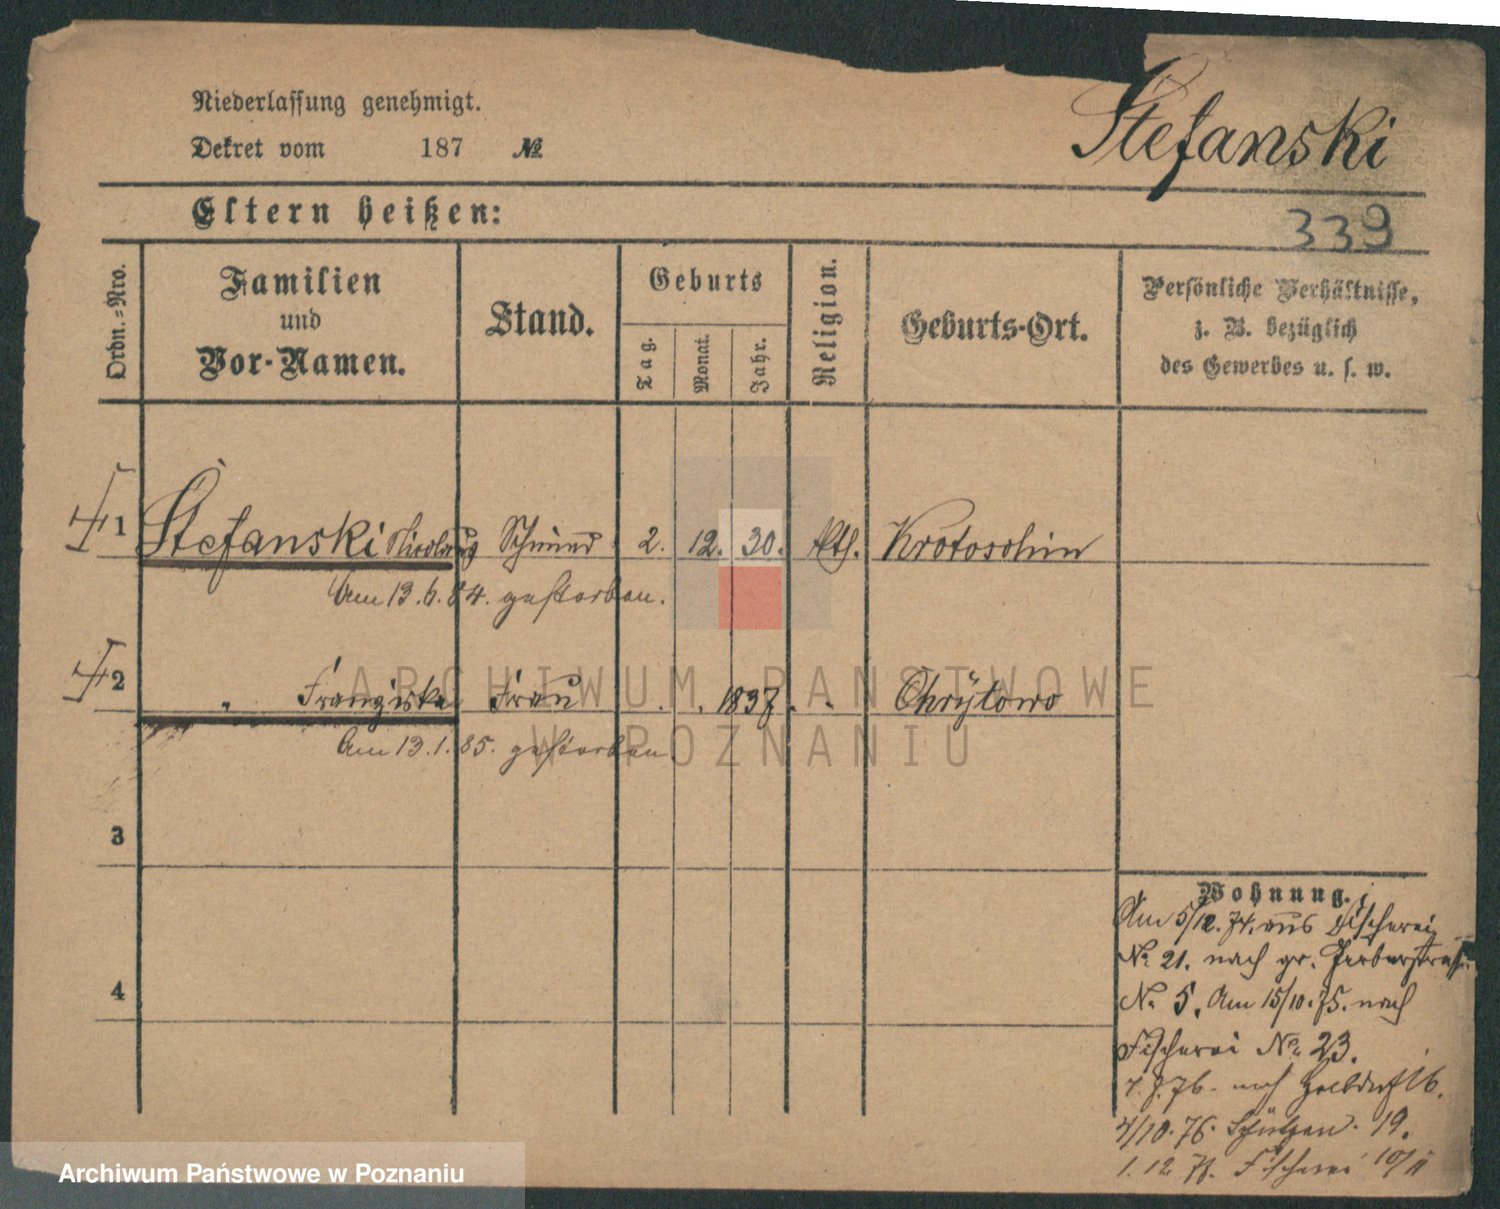 Niederlassung genehmigt.
Dekret vom 187 №
Stefanski
Eltern heißen:
339
Ordn.-Nro.
Familien
und
Vor-Namen.
Stand.
Geburts
Tag.
Monat.
Jahr.
Religion.
Geburts-Ort.
Persönliche Verhältnisse,
z. B. bezüglich
des Gewerbes u. s. w.
1 Stefanski Nicolaus Schmied 2. 12. 30. kth. Krotoschin
Am 13.6.84. gestorben.
2 " Franziska Frau 1837 Chrÿtowo
Am 13.1.85. gestorben
3
4
Wohnung.
Am 5/12. 74. aus Fischerei
No 21. nach gr. Gerberstraße
No 5. Am 15/10. 75. nach
Fischerei No. 23.
76. nach 16.
4/10. 76. Schützen 19.
1. 12. Fischerei 10/11
ARCHIWUM PAŃSTWOWE
W POZNANIU
Archiwum Państwowe w Poznaniu